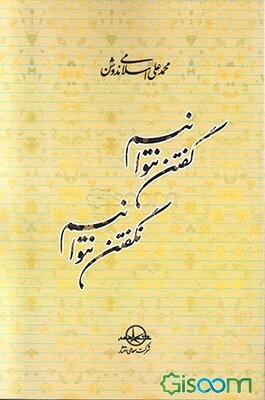 محمدعلی اسلامی ندوشن
گفتن نتوانیم
نگفتن نتوانیم
شرکت سهامی انتشار
Gisoom
گیسوم